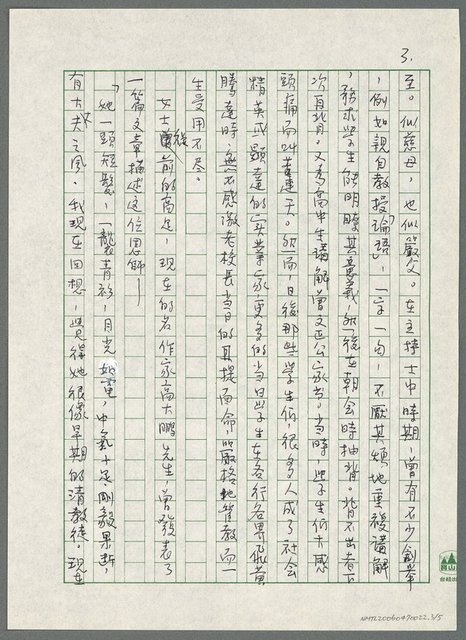 3.
至。似慈母，也似嚴父。在主持士中時期，曾有不少創舉
，例如親自教授「論語」，一字一句，不厭其煩地重複講解
，務求學生能明瞭其意義，然後在朝會時抽背。背不出者下
次再背。又為高中生講解曾文正公家書。當時，學生們大感
頭痛而叫苦連天。然而，日後那些學生們，很多人成了社會
精英或顯達的實業家，更多的當日學生在各行各界飛黃
騰達時，無不感激老校長當日的耳提面命，嚴格地管教而一
生受用不尽。
女士從前的高足，現在的名作家高大鵬先生，曾發表了
一篇文章描述這位恩師——
「她一頭短髮，一襲青衫，目光如電，中氣十足，剛毅果断，
有大丈夫之風。我現在回想，覺得她很像早期的清教徒。現在
圓山
NMTL20060470022.3/5